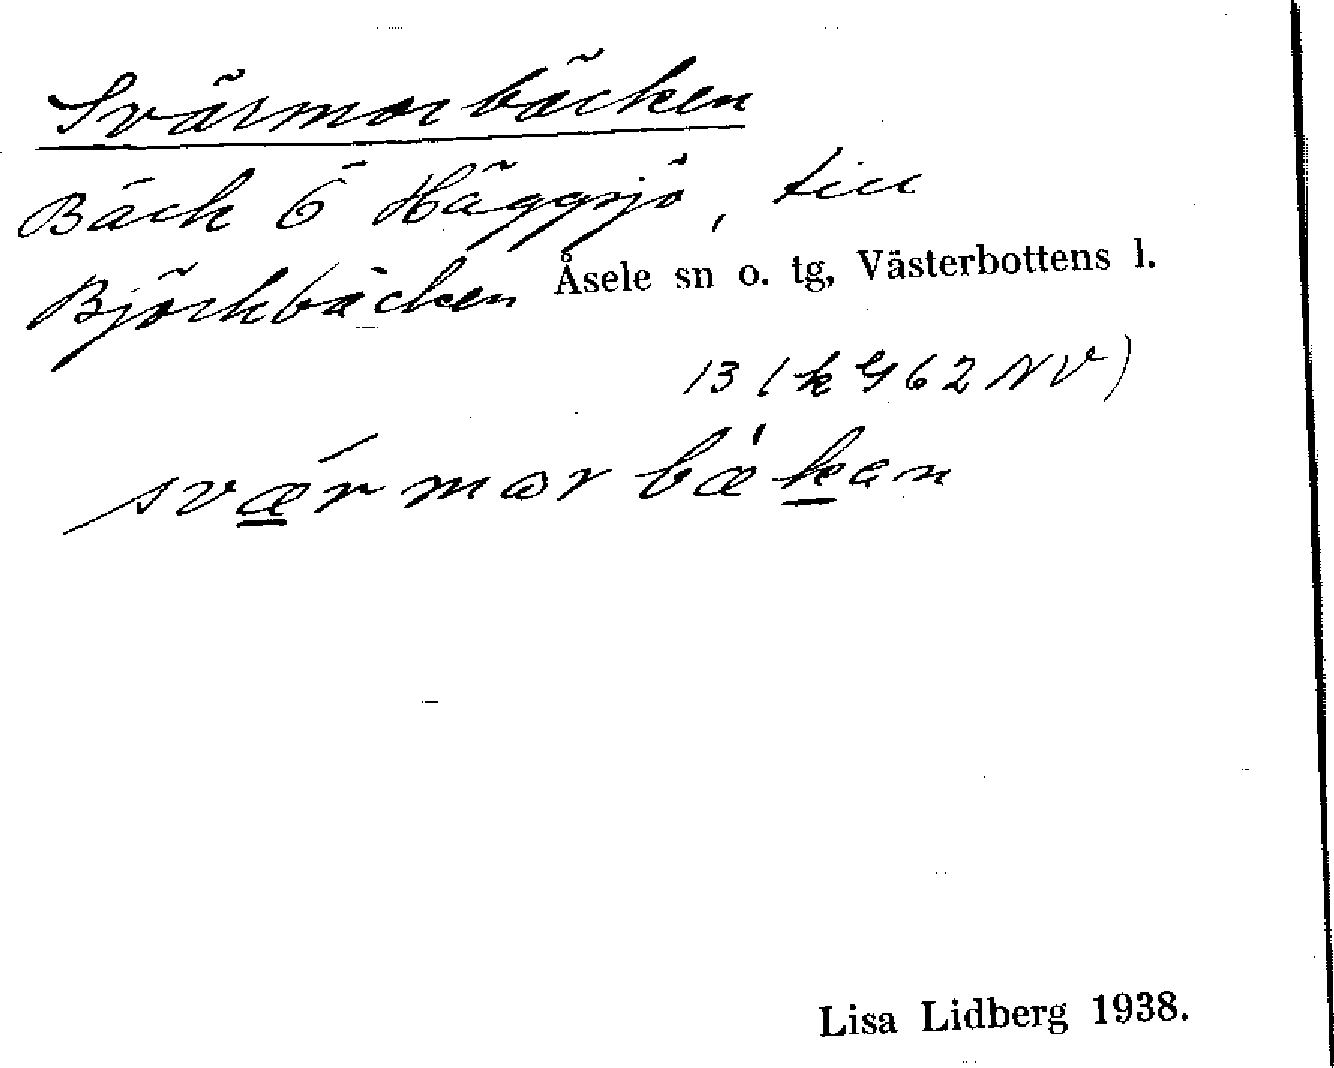 Svärmorbäcken
Bäck Ö Häggsjö, till
Björkbäcken Åsele sn o. tg, Västerbottens l.
13 (k G 62 NV)
svǽrmor bæ'kan
Lisa Lidberg 1938.